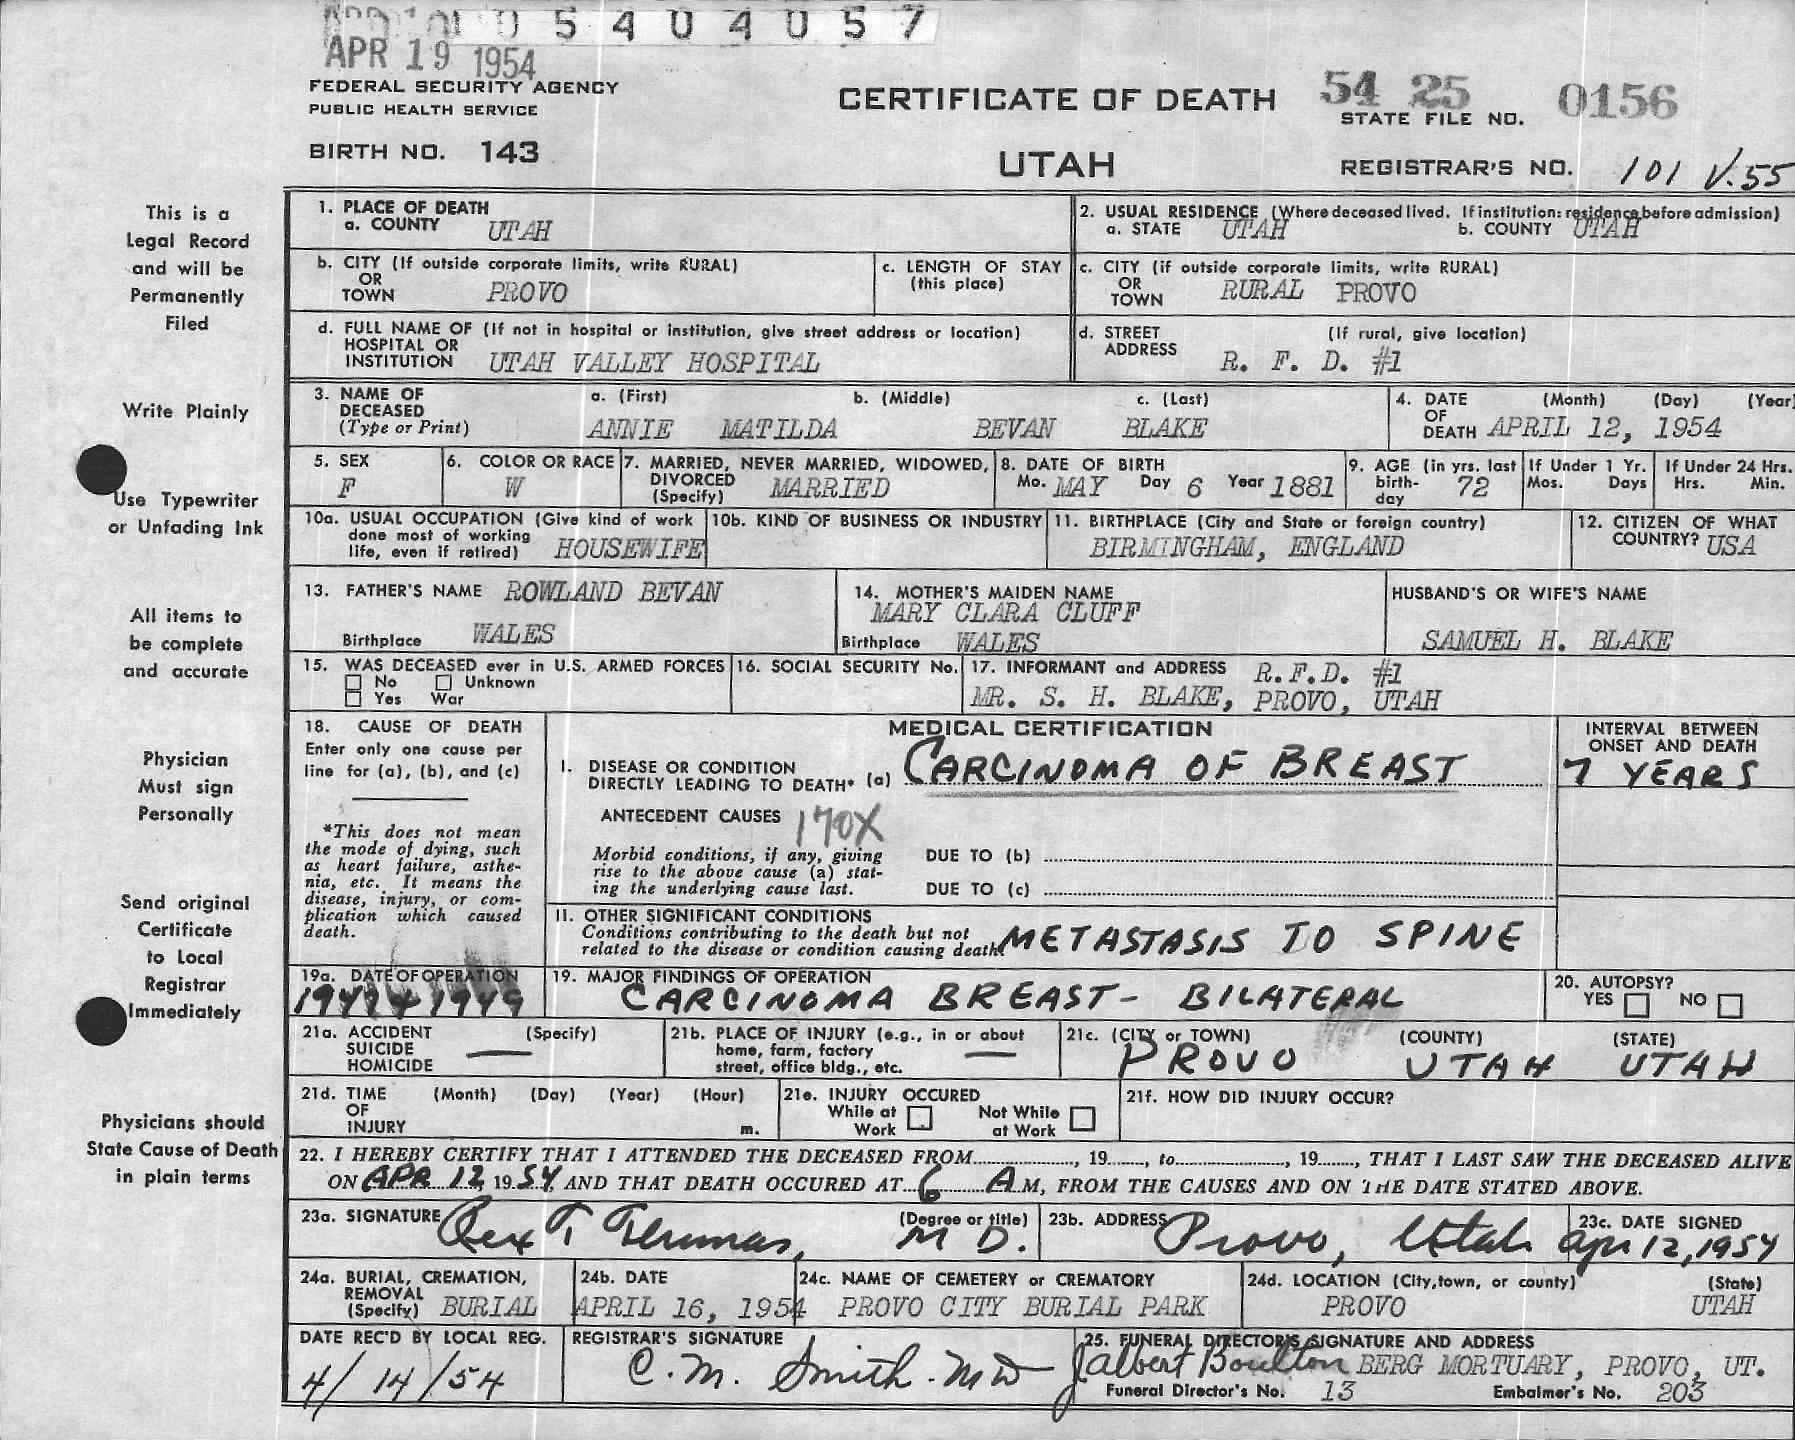 05404057
APR 19 1954
FEDERAL SECURITY AGENCY
PUBLIC HEALTH SERVICE
BIRTH NO. 143
CERTIFICATE OF DEATH
UTAH
54 25 0156
STATE FILE NO.
REGISTRAR'S NO. 101 V.55
This is a
Legal Record
and will be
Permanently
Filed
Write Plainly
Use Typewriter
or Unfading Ink
All items to
be complete
and accurate
Physician
Must sign
Personally
Send original
Certificate
to Local
Registrar
Immediately
Physicians should
State Cause of Death
in plain terms
1. PLACE OF DEATH
a. COUNTY UTAH
2. USUAL RESIDENCE (Where deceased lived. If institution: residence before admission)
a. STATE UTAH b. COUNTY UTAH
b. CITY (If outside corporate limits, write RURAL)
OR
TOWN PROVO
c. LENGTH OF STAY
(this place)
c. CITY (if outside corporate limits, write RURAL)
OR
TOWN RURAL PROVO
d. FULL NAME OF (If not in hospital or institution, give street address or location)
HOSPITAL OR
INSTITUTION UTAH VALLEY HOSPITAL
d. STREET (If rural, give location)
ADDRESS R. F. D. #1
3. NAME OF DECEASED
(Type or Print)
a. (First) b. (Middle) c. (Last)
ANNIE MATILDA BEVAN BLAKE
4. DATE OF DEATH (Month) (Day) (Year)
APRIL 12, 1954
5. SEX
F
6. COLOR OR RACE
W
7. MARRIED, NEVER MARRIED, WIDOWED,
DIVORCED
(Specify) MARRIED
8. DATE OF BIRTH
Mo. MAY Day 6 Year 1881
9. AGE (in yrs. last
birth-
day 72
If Under 1 Yr.
Mos. Days
If Under 24 Hrs.
Hrs. Min.
10a. USUAL OCCUPATION (Give kind of work
done most of working
life, even if retired) HOUSEWIFE
10b. KIND OF BUSINESS OR INDUSTRY
11. BIRTHPLACE (City and State or foreign country)
BIRMINGHAM, ENGLAND
12. CITIZEN OF WHAT
COUNTRY? USA
13. FATHER'S NAME ROWLAND BEVAN
Birthplace WALES
14. MOTHER'S MAIDEN NAME
MARY CLARA CLUFF
Birthplace WALES
HUSBAND'S OR WIFE'S NAME
SAMUEL H. BLAKE
15. WAS DECEASED ever in U.S. ARMED FORCES
No Unknown
Yes War
16. SOCIAL SECURITY No.
17. INFORMANT and ADDRESS R.F.D. #1
MR. S. H. BLAKE, PROVO, UTAH
18. CAUSE OF DEATH
Enter only one cause per
line for (a), (b), and (c)
*This does not mean
the mode of dying, such
as heart failure, asthe-
nia, etc. It means the
disease, injury, or com-
plication which caused
death.
MEDICAL CERTIFICATION
I. DISEASE OR CONDITION
DIRECTLY LEADING TO DEATH* (a) CARCINOMA OF BREAST
INTERVAL BETWEEN
ONSET AND DEATH
7 YEARS
ANTECEDENT CAUSES 170X
Morbid conditions, if any, giving
rise to the above cause (a) stat-
ing the underlying cause last.
DUE TO (b)
DUE TO (c)
II. OTHER SIGNIFICANT CONDITIONS
Conditions contributing to the death but not
related to the disease or condition causing death. METASTASIS TO SPINE
19a. DATE OF OPERATION
1949
19. MAJOR FINDINGS OF OPERATION
CARCINOMA BREAST- BILATERAL
20. AUTOPSY?
YES NO
21a. ACCIDENT (Specify)
SUICIDE
HOMICIDE
21b. PLACE OF INJURY (e.g., in or about
home, farm, factory
street, office bldg., etc.
21c. (CITY or TOWN) (COUNTY) (STATE)
PROVO UTAH UTAH
21d. TIME (Month) (Day) (Year) (Hour)
OF
INJURY m.
21e. INJURY OCCURED
While at Work Not While at Work
21f. HOW DID INJURY OCCUR?
22. I HEREBY CERTIFY THAT I ATTENDED THE DECEASED FROM, 19, to, 19, THAT I LAST SAW THE DECEASED ALIVE
ON APR 12 1954 AND THAT DEATH OCCURED AT 6 A M, FROM THE CAUSES AND ON THE DATE STATED ABOVE.
23a. SIGNATURE (Degree or title)
Rex T. Thomas, M D.
23b. ADDRESS
Provo, Utah
23c. DATE SIGNED
Apr 12, 1954
24a. BURIAL, CREMATION,
REMOVAL
(Specify) BURIAL
24b. DATE
APRIL 16, 1954
24c. NAME OF CEMETERY or CREMATORY
PROVO CITY BURIAL PARK
24d. LOCATION (City, town, or county) (State)
PROVO UTAH
DATE REC'D BY LOCAL REG.
4/14/54
REGISTRAR'S SIGNATURE
C. M. Smith. MD
25. FUNERAL DIRECTOR'S SIGNATURE AND ADDRESS
Jalbert Boulton BERG MORTUARY, PROVO, UT.
Funeral Director's No. 13 Embalmer's No. 203